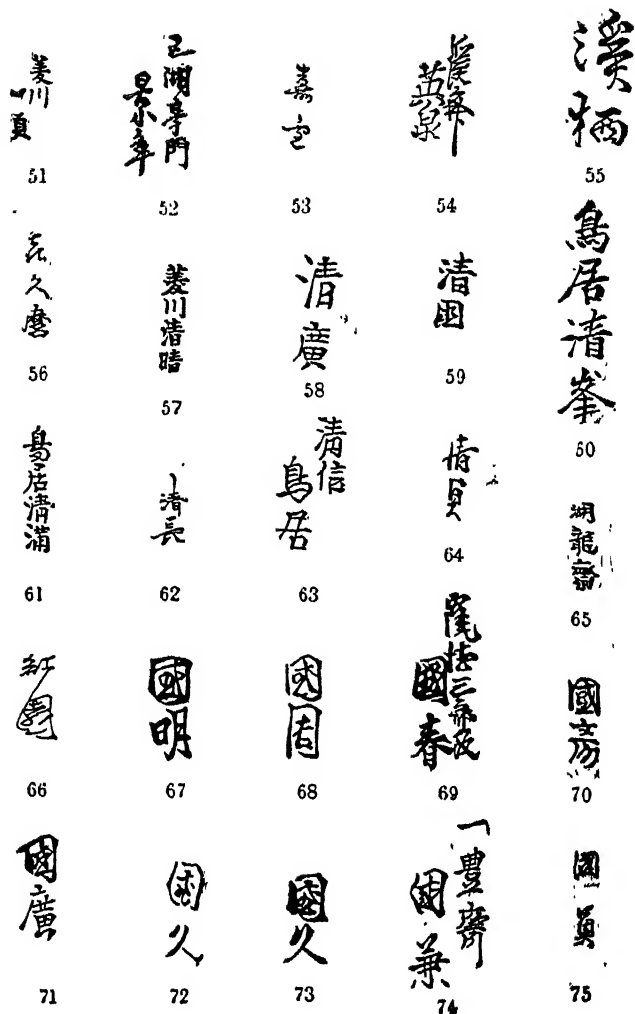 菱川
員
51
52
嘉
53
英泉
54
溪栖
55
㐂久麿
56
菱川清晴
57
清廣
58
清國
59
鳥居清峯
60
鳥居清滿
61
清長
62
清信
鳥居
63
清貞
64
湖龍齋
65
紅翫
66
國明
67
國周
68
國春
69
國房
70
國廣
71
國久
72
國久
73
一豊齋
國兼
74
國員
75